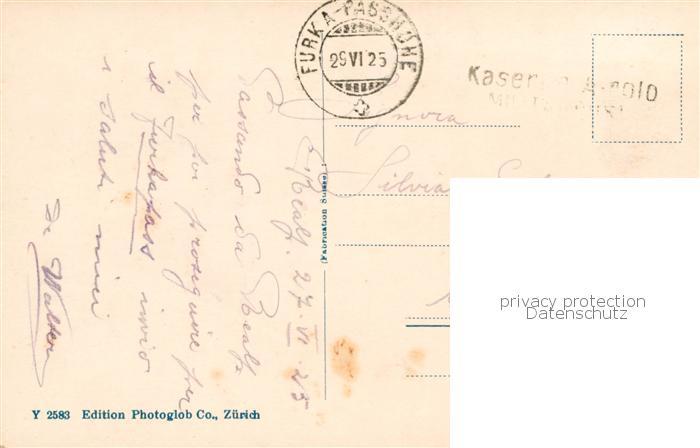 FURKA-PASSHÖHE
29 VI 25
Signora
Silvia
Realp. 27. VI. 25
Passando da Realp
per poi proseguire per
il Furkapass invio
i saluti miei
Da Walter
(Fabrication Suisse)
Y 2583 Edition Photoglob Co., Zürich
privacy protection
Datenschutz